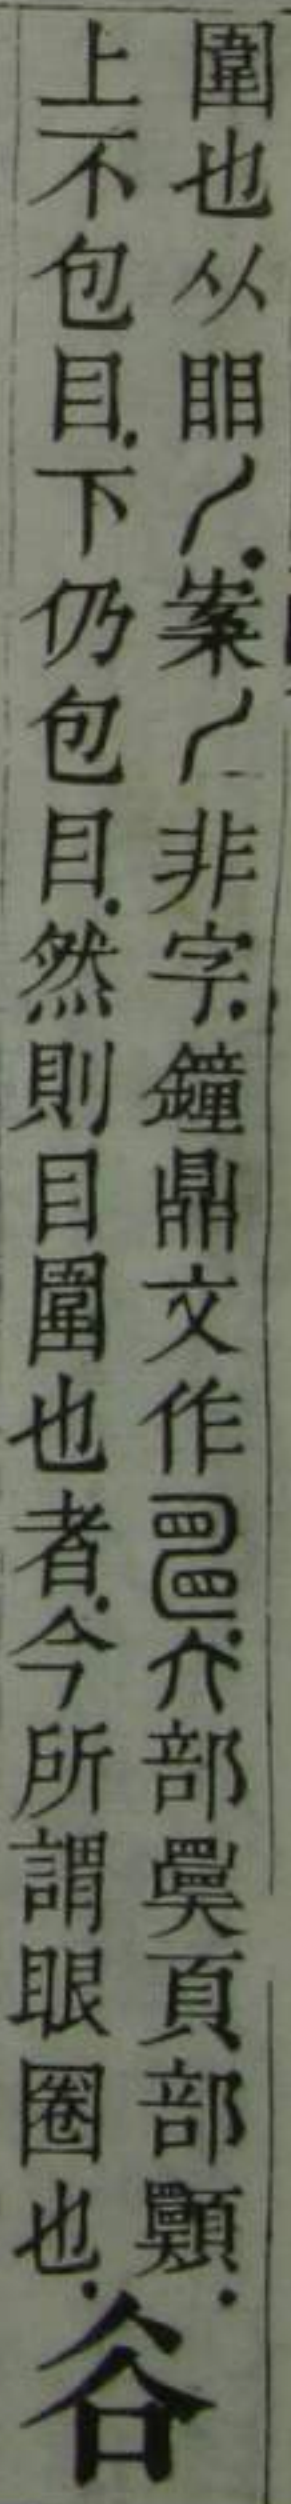 圍也从䀠丿案丿非字鐘鼎文作 部奰頁部顨
上不包目下仍包目然則目圍也者今所謂眼圈也
谷